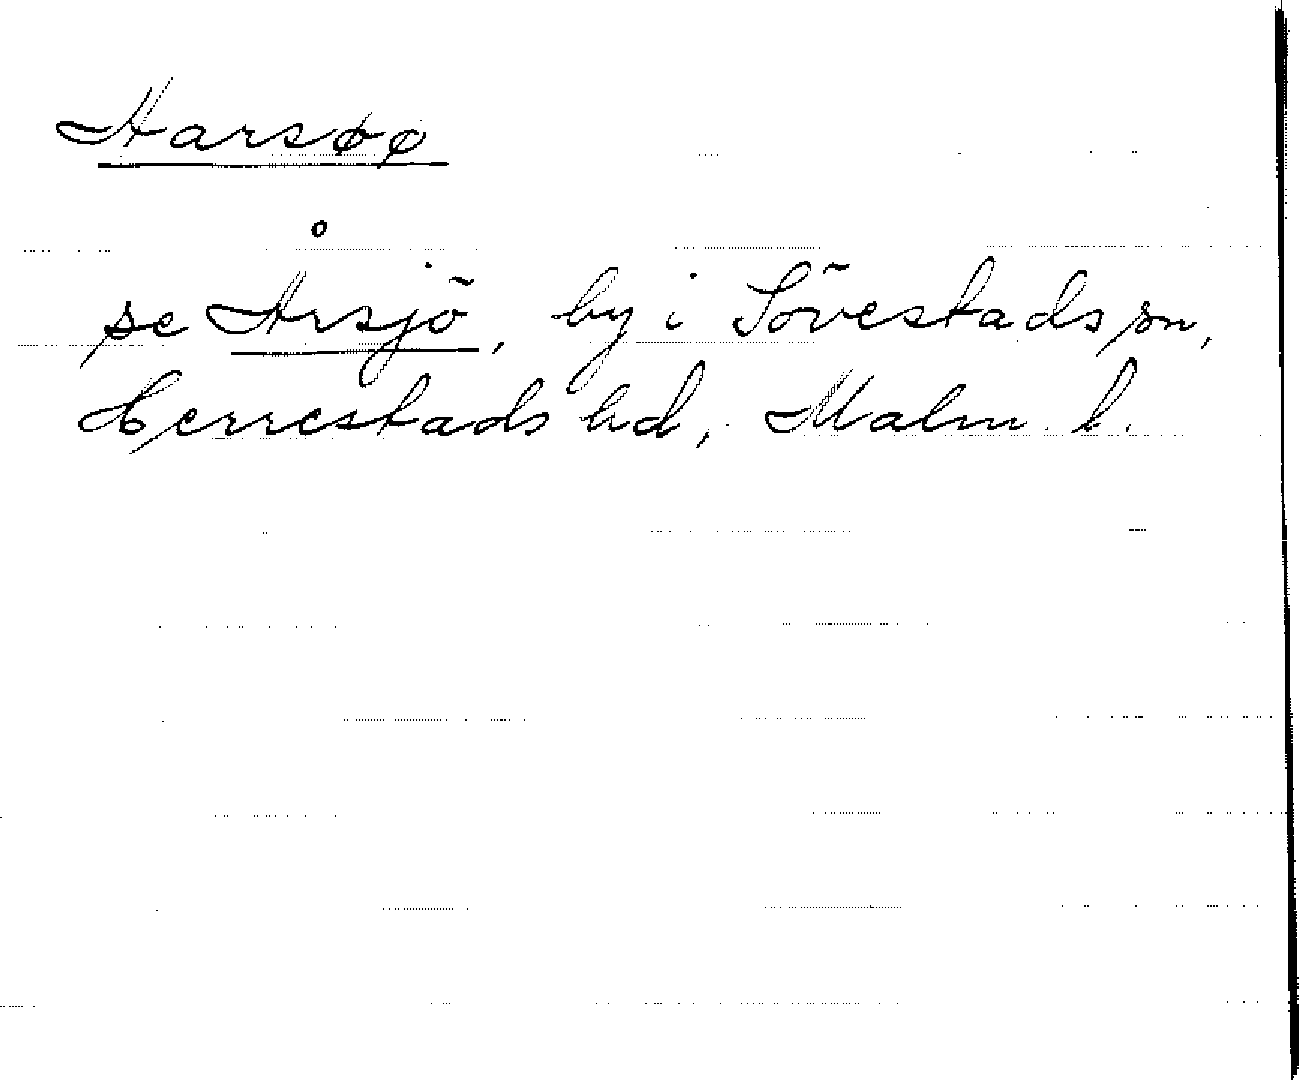 Aarsøø
se Årsjö, by i Sövestads sn,
Herrestads hd, Malm. l.